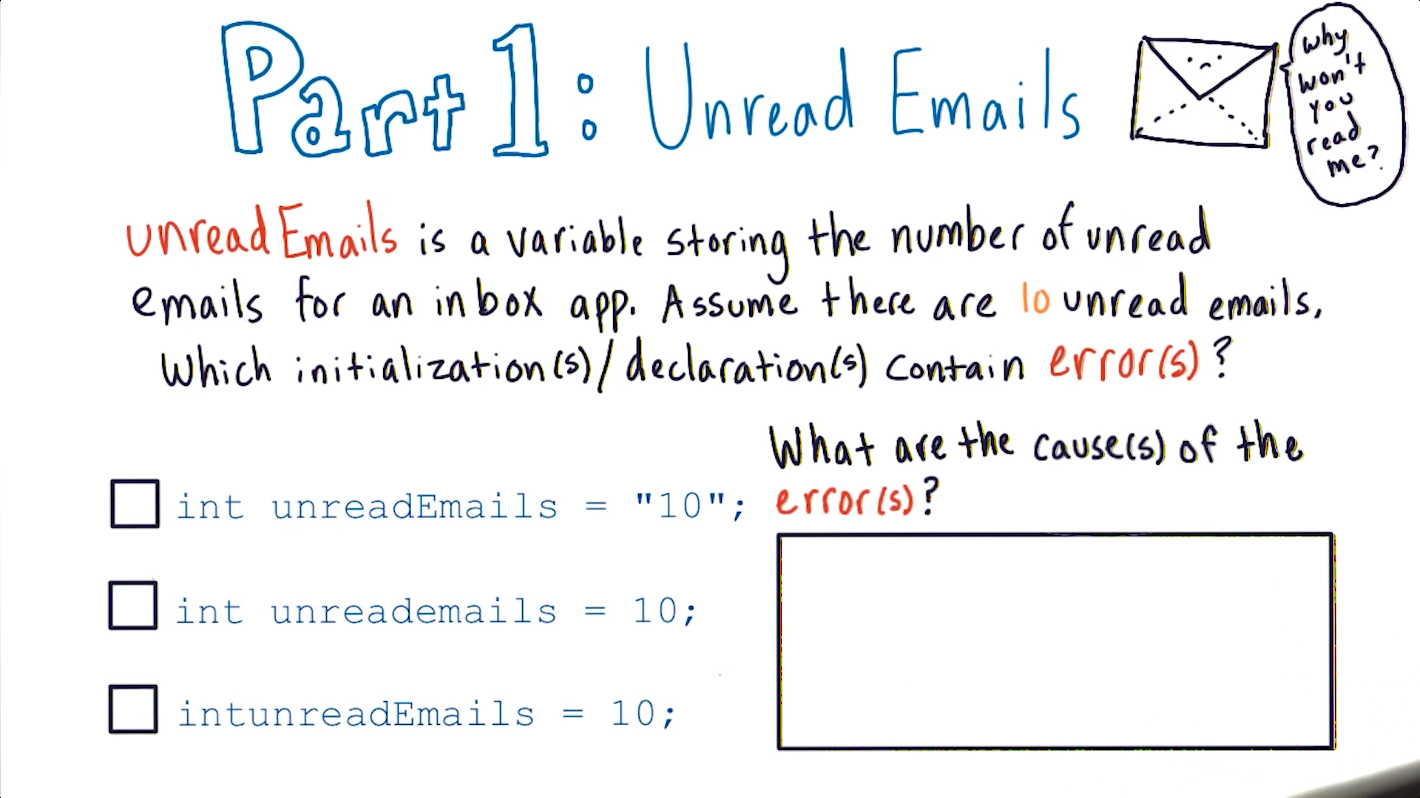 Part 1: Unread Emails
why
won't
you
read
me?
unreadEmails is a variable storing the number of unread
emails for an inbox app. Assume there are 10 unread emails,
Which initialization(s)/declaration(s) contain error(s)?
What are the cause(s) of the
error(s)?
int unreadEmails = "10";
int unreademails = 10;
intunreadEmails = 10;